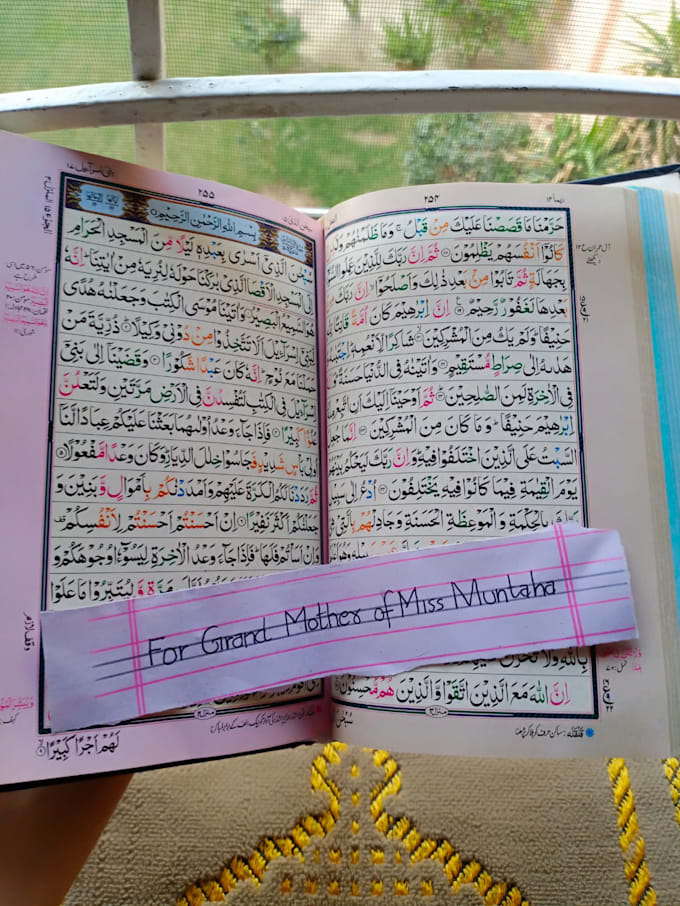 ربما ١٤
٢٥٤
حَرَّمْنَا مَا قَصَصْنَا عَلَيْكَ مِنْ قَبْلُ ۚ وَمَا ظَلَمْنٰهُمْ
كَانُوْۤا اَنْفُسَهُمْ يَظْلِمُوْنَ ثُمَّ اِنَّ رَبَّكَ لِلَّذِيْنَ عَمِلُوا
بِجَهَالَةٍ ثُمَّ تَابُوْا مِنْۢ بَعْدِ ذٰلِكَ وَاَصْلَحُوْۤا اِنَّ رَبَّكَ
بَعْدِهَا لَغَفُوْرٌ رَّحِيْمٌ اِنَّ اِبْرٰهِيْمَ كَانَ اُمَّةً قَانِتًا
حَنِيْفًا وَلَمْ يَكُ مِنَ الْمُشْرِكِيْنَ شَاكِرًا لِّاَنْعُمِهٖ
هَدٰىهُ اِلٰى صِرَاطٍ مُّسْتَقِيْمٍ وَاٰتَيْنٰهُ فِى الدُّنْيَا حَسَنَةً
فِى الْاٰخِرَةِ لَمِنَ الصّٰلِحِيْنَ ثُمَّ اَوْحَيْنَاۤ اِلَيْكَ اَنِ اتَّبِعْ
اِبْرٰهِيْمَ حَنِيْفًا وَمَا كَانَ مِنَ الْمُشْرِكِيْنَ اِنَّمَا جُعِلَ
السَّبْتُ عَلَى الَّذِيْنَ اخْتَلَفُوْا فِيْهِ وَاِنَّ رَبَّكَ لَيَحْكُمُ بَيْنَهُمْ
يَوْمَ الْقِيٰمَةِ فِيْمَا كَانُوْا فِيْهِ يَخْتَلِفُوْنَ اُدْعُ اِلٰى سَبِيْلِ
بِالْحِكْمَةِ وَالْمَوْعِظَةِ الْحَسَنَةِ وَجَادِلْهُمْ بِالَّتِىْ
بِاللّٰهِ وَلَا تَحْزَنْ
اِنَّ اللّٰهَ مَعَ الَّذِيْنَ اتَّقَوْا وَّالَّذِيْنَ هُمْ مُّحْسِنُوْنَ
منزل ٣
بنى اسرآءيل ١٧
٢٥٥
سبحن الذى ١٥
بِسْمِ اللّٰهِ الرَّحْمٰنِ الرَّحِيْمِ
سُبْحٰنَ الَّذِىْۤ اَسْرٰى بِعَبْدِهٖ لَيْلًا مِّنَ الْمَسْجِدِ الْحَرَامِ
اِلَى الْمَسْجِدِ الْاَقْصَا الَّذِىْ بٰرَكْنَا حَوْلَهٗ لِنُرِيَهٗ مِنْ اٰيٰتِنَا اِنَّهٗ
هُوَ السَّمِيْعُ الْبَصِيْرُ وَاٰتَيْنَا مُوْسَى الْكِتٰبَ وَجَعَلْنٰهُ هُدًى
لِّبَنِىْۤ اِسْرَآءِيْلَ اَلَّا تَتَّخِذُوْا مِنْ دُوْنِىْ وَكِيْلًا ذُرِّيَّةَ مَنْ
حَمَلْنَا مَعَ نُوْحٍ اِنَّهٗ كَانَ عَبْدًا شَكُوْرًا وَقَضَيْنَاۤ اِلٰى بَنِىْۤ
اِسْرَآءِيْلَ فِى الْكِتٰبِ لَتُفْسِدُنَّ فِى الْاَرْضِ مَرَّتَيْنِ وَلَتَعْلُنَّ
عُلُوًّا كَبِيْرًا فَاِذَا جَآءَ وَعْدُ اُوْلٰىهُمَا بَعَثْنَا عَلَيْكُمْ عِبَادًا لَّنَاۤ
اُولِىْ بَاْسٍ شَدِيْدٍ فَجَاسُوْا خِلٰلَ الدِّيَارِ وَكَانَ وَعْدًا مَّفْعُوْلًا
ثُمَّ رَدَدْنَا لَكُمُ الْكَرَّةَ عَلَيْهِمْ وَاَمْدَدْنٰكُمْ بِاَمْوَالٍ وَّبَنِيْنَ وَ
جَعَلْنٰكُمْ اَكْثَرَ نَفِيْرًا اِنْ اَحْسَنْتُمْ اَحْسَنْتُمْ لِاَنْفُسِكُمْ
وَاِنْ اَسَاْتُمْ فَلَهَا فَاِذَا جَآءَ وَعْدُ الْاٰخِرَةِ لِيَسُوْٓءٗا وُجُوْهَكُمْ وَ
مَرَّةٍ وَّلِيُتَبِّرُوْا مَا عَلَوْا
منزل ٤
لَهُمْ اَجْرًا كَبِيْرًا
وقف لازم
For Grand Mother of Miss Muntaha